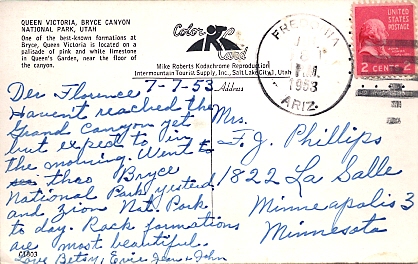 QUEEN VICTORIA, BRYCE CANYON
NATIONAL PARK, UTAH
One of the best-known formations at
Bryce, Queen Victoria is located on a
palisade of pink and white limestone
in Queen's Garden, near the floor of
the canyon.
Color
Card
Mike Roberts Kodachrome Reproduction
Intermountain Tourist Supply, Inc., Salt Lake City 1, Utah
Address
1953
ARIZ.
UNITED STATES
POSTAGE
2 CENTS 2
7-7-53
Dear Florence
Haven't reached the
Grand Canyon yet
but expect to in
the morning. Went
thro Bryce
National Park yesterd.
and Zion Nat. Park
to day. Rock formations
are most beautiful.
Love Betsy, Evie Jean & John
C1003
Mrs.
F. J. Phillips
1822 La Salle
Minneapolis 3
Minnesota